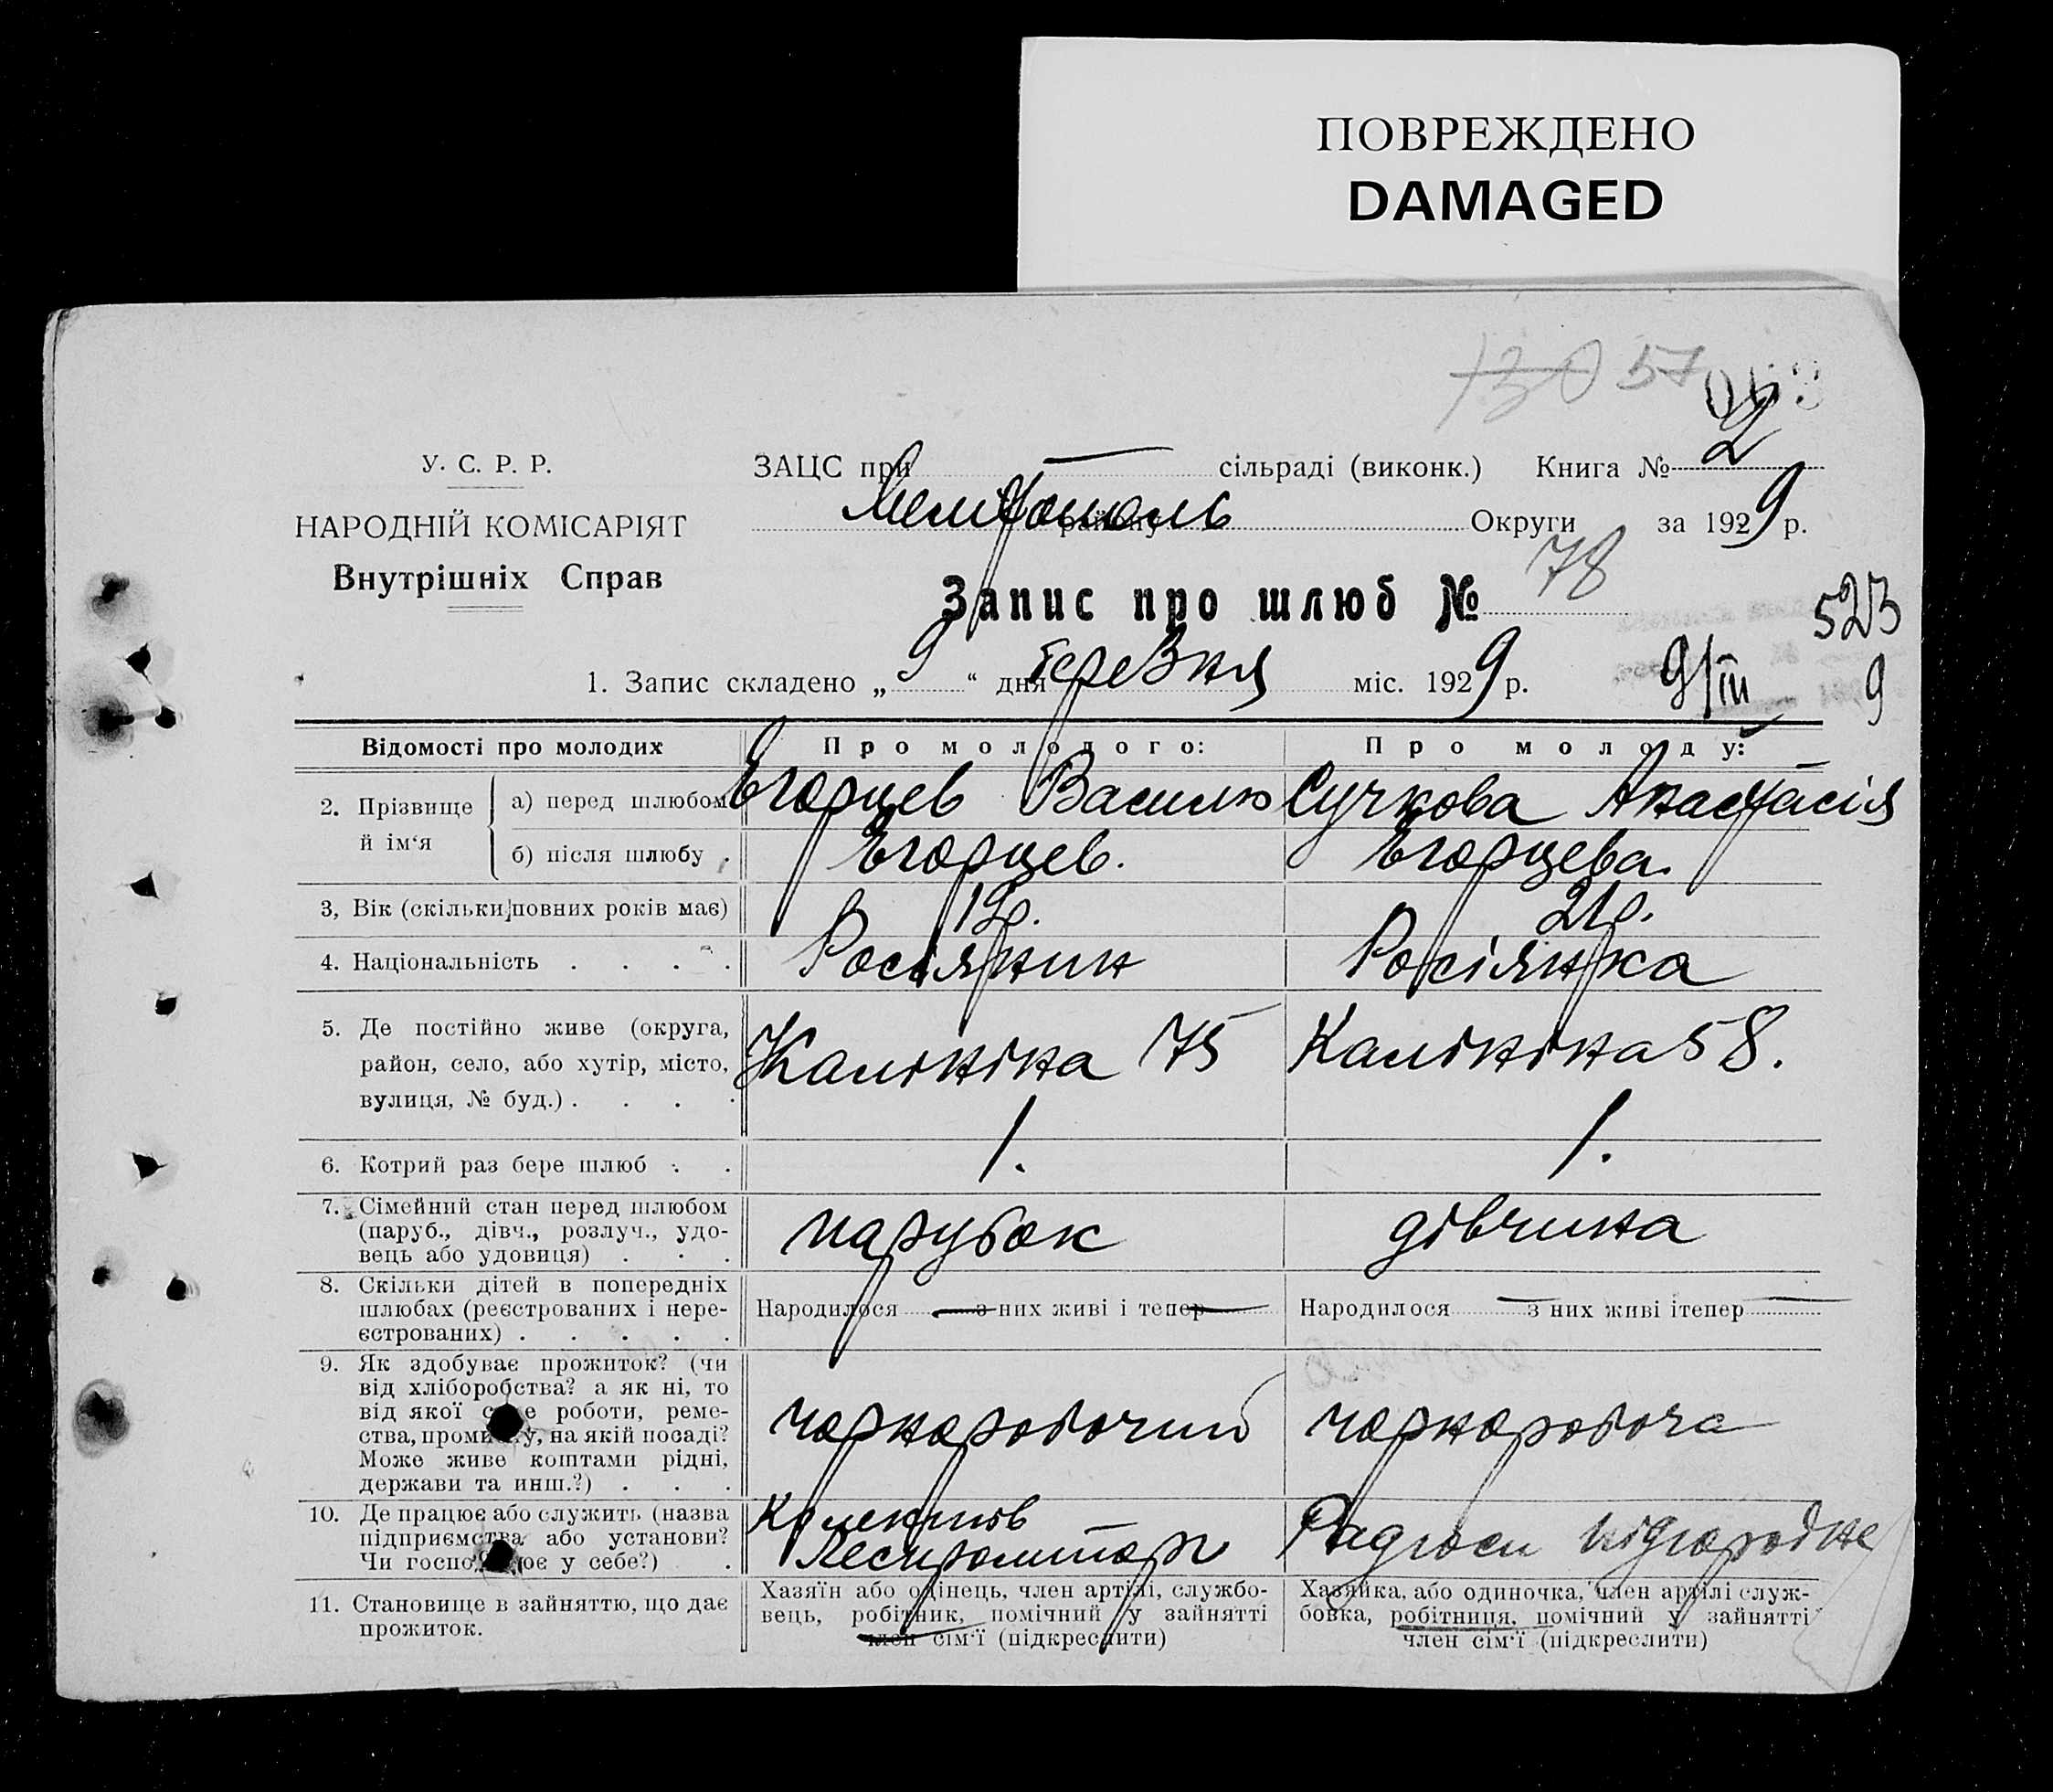 ПОВРЕЖДЕНО
DAMAGED
130 57
У. С. Р. Р.
НАРОДНІЙ КОМІСАРІЯТ
Внутрішніх Справ
ЗАЦС при — сільраді (виконк.) Книга № 2
Мелітополь району Округи за 1929 р.
Запис про шлюб № 78
523
1. Запис складено „ 9 “ дня березня міс. 1929 р. 9/III 9
Відомості про молодих Про молодого: Про молоду:
2. Прізвище й ім‘я
а) перед шлюбом Єгорцев Василь Сучкова Анастасія
б) після шлюбу . Єгорцев. Єгорцева.
3, Вік (скільки повних років має) 19р. 21р.
4. Національність . . . . Росіянин Росіянка
5. Де постійно живе (округа,
район, село, або хутір, місто,
вулиця, № буд.) . . . .
Калініна 75 Калініна 58.
6. Котрий раз бере шлюб . . 1. 1.
7. Сімейний стан перед шлюбом
(паруб., дівч., розлуч., удо-
вець або удовиця) . . .
парубок дівчина
8. Скільки дітей в попередніх
шлюбах (реєстрованих і нере-
єстрованих) . . . . .
Народилося — з них живі і тепер — Народилося — з них живі ітепер —
9. Як здобуває прожиток? (чи
від хліборобства? а як ні, то
від якої с е роботи, реме-
ства, промислу, на якій посаді?
Може живе коштами рідні,
держави та инш.?) . . .
чорноробочий чорноробоча
10. Де працює або служить (назва
підприємства або установи?
Чи господ ює у себе?) .
Колектив
Радгосп
11. Становище в зайняттю, що дає
прожиток.
Хазяїн або одінець, член артілі, службо-
вець, робітник, помічний у зайнятті
член сім‘ї (підкреслити)
Хазяйка, або одиночка, член артілі служ-
бовка, робітниця, помічний у зайнятті
член сім‘ї (підкреслити)